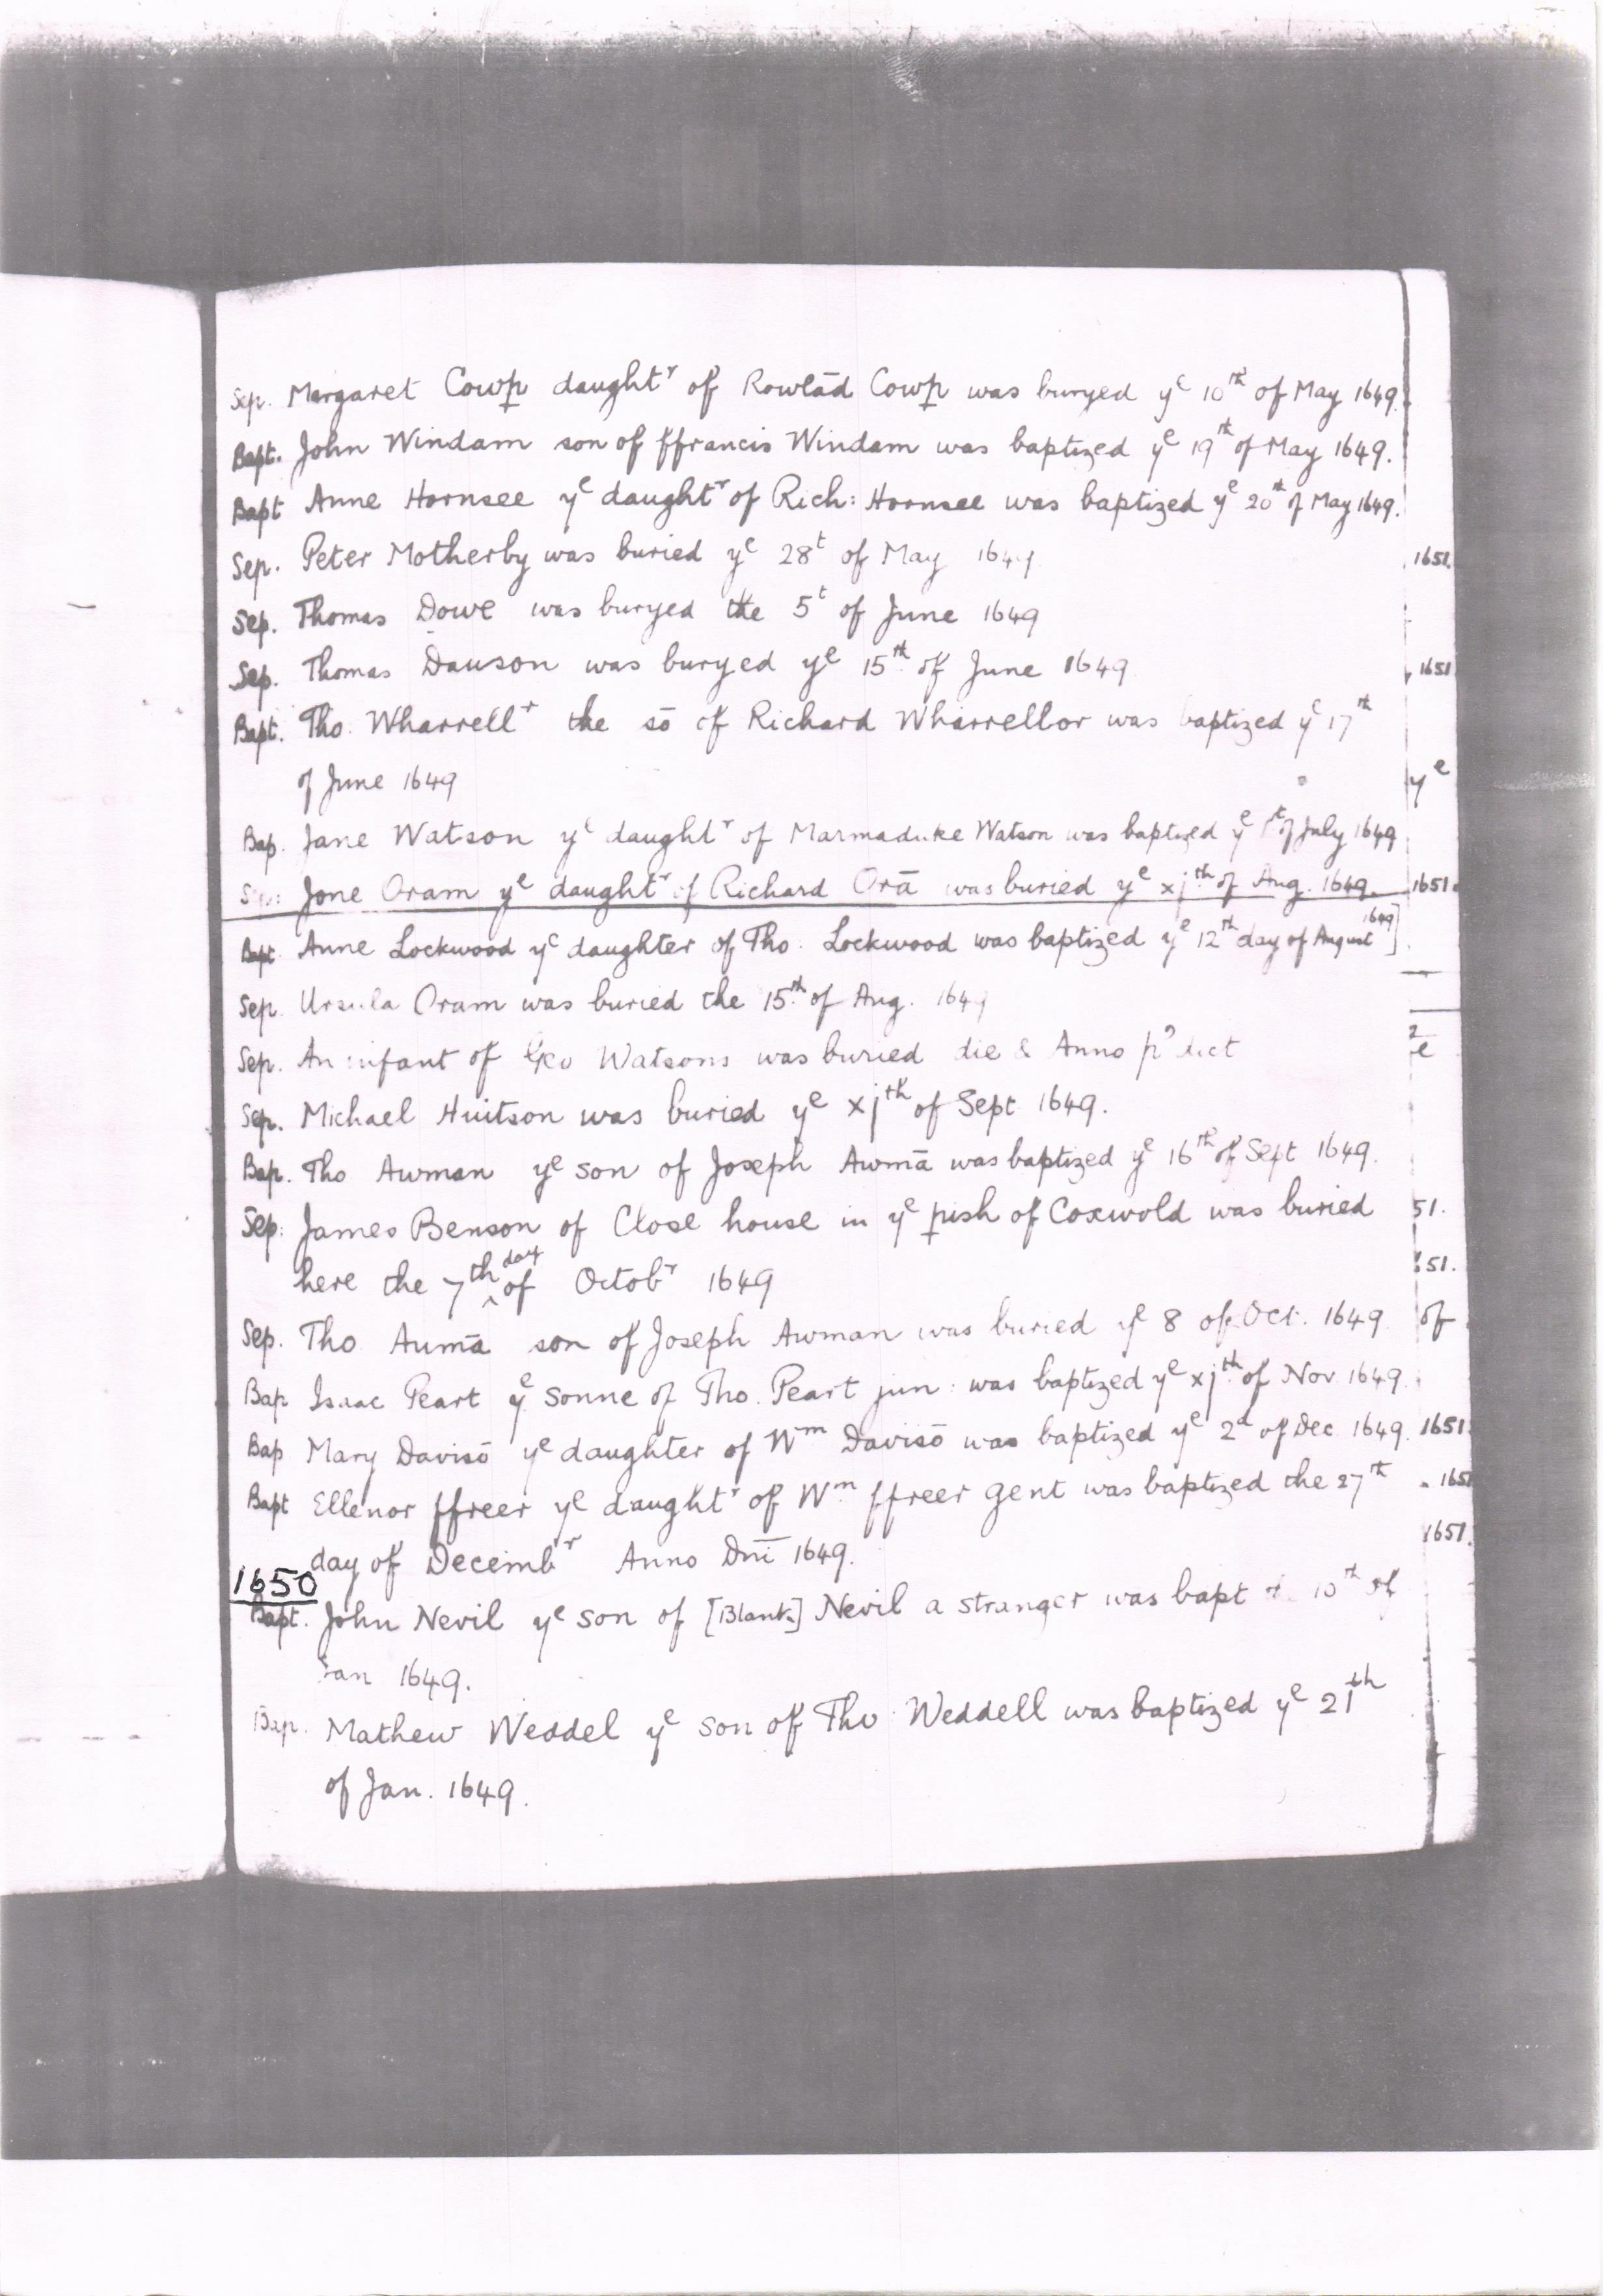 Sep. Margaret Cowꝑ daughtʳ of Rowlād Cowꝑ was buryed yᵉ 10ᵗʰ of May 1649.
Bapt. John Windam son of ffrancis Windam was baptized yᵉ 19ᵗʰ of May 1649.
Bapt Anne Hornsee yᵉ daughtʳ of Rich: Hornsee was baptized yᵉ 20ᵗʰ of May 1649.
Sep. Peter Motherby was buried yᵉ 28ᵗ of May 1649
1651.
Sep. Thomas Dowe was buryed the 5ᵗ of June 1649
Sep. Thomas Dawson was buryed yᵉ 15ᵗʰ of June 1649
1651
Bapt. Tho. Wharrellʳ the sō of Richard Wharrellor was baptized yᵉ 17ᵗʰ
of June 1649
yᵉ
Bap. Jane Watson yᵉ daughtʳ of Marmaduke Watson was baptized yᵉ 1ᵗ of July 1649
Sep: Jone Oram yᵉ daughtʳ of Richard Orā was buried yᵉ xjᵗʰ of Aug. 1649.
1651.
Bapt. Anne Lockwood yᵉ daughter of Tho. Lockwood was baptized yᵉ 12ᵗʰ day of August 1649]
Sep. Ursula Oram was buried the 15ᵗʰ of Aug. 1649
Sep. An infant of Geo Watsons was buried die & Anno p'dict
2
e
Sep. Michael Huitson was buried yᵉ xjᵗʰ of Sept 1649.
Bap. Tho Awman yᵉ son of Joseph Awmā was baptized yᵉ 16ᵗʰ of Sept 1649.
Sep: James Benson of Close house in yᵉ ꝑish of Coxwold was buried
51.
here the 7ᵗʰ ^day of Octobʳ 1649
51.
Sep. Tho. Aumā son of Joseph Awman was buried yᵉ 8 of Oct. 1649
of
Bap Isaac Peart yᵉ sonne of Tho. Peart jun: was baptized yᵉ xjᵗʰ of Nov 1649.
Bap Mary Davisō yᵉ daughter of Wᵐ Davisō was baptized yᵉ 2ᵈ of Dec 1649.
1651
Bapt Ellenor ffreer yᵉ daughtʳ of Wᵐ ffreer gent was baptized the 27ᵗʰ
1651
day of Decembʳ Anno Dn̄i 1649.
1651.
1650
Bapt. John Nevil yᵉ son of [Blank] Nevil a stranger was bapt 10ᵗʰ of
Jan 1649.
Bap. Mathew Weddel yᵉ son of Tho Weddell was baptized yᵉ 21ᵗʰ
of Jan. 1649.